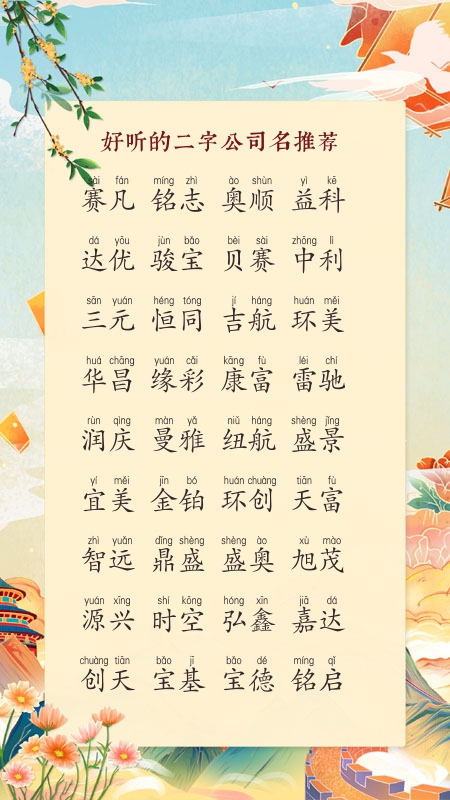 好听的二字公司名推荐
sài fán míng zhì ào shùn yì kē
赛凡 铭志 奥顺 益科
dá yōu jùn bǎo bèi sài zhōng lì
达优 骏宝 贝赛 中利
sān yuán héng tóng jí háng huán měi
三元 恒同 吉航 环美
huá chāng yuán cǎi kāng fù léi chí
华昌 缘彩 康富 雷驰
rùn qìng màn yǎ niǔ háng shèng jǐng
润庆 曼雅 纽航 盛景
yí měi jīn bó huán chuàng tiān fù
宜美 金铂 环创 天富
zhì yuǎn dǐng shèng shèng ào xù mào
智远 鼎盛 盛奥 旭茂
yuán xīng shí kōng hóng xīn jiā dá
源兴 时空 弘鑫 嘉达
chuàng tiān bǎo jī bǎo dé míng qǐ
创天 宝基 宝德 铭启